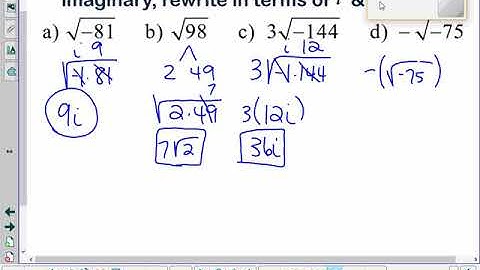 imaginary, rewrite in terms of i &
a) √-81 b) √98 c) 3√-144 d) -√-75
i 9
√-1·81
9i
2 49
7
√2·49
7√2
i 12
3√-1·144
3(12i)
36i
-(√-75)